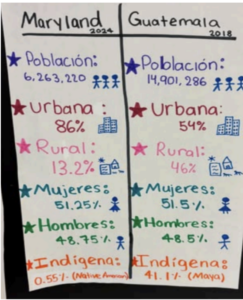 Maryland
2024
Población:
6,263,220
Urbana:
86%
Rural:
13.2%
Mujeres:
51.25%
Hombres:
48.75%
Indígena:
0.55% (Native American)
Guatemala
2018
Población:
14,901,286
Urbana:
54%
Rural:
46%
Mujeres:
51.5%
Hombres:
48.5%
Indígena:
41.1% (Maya)